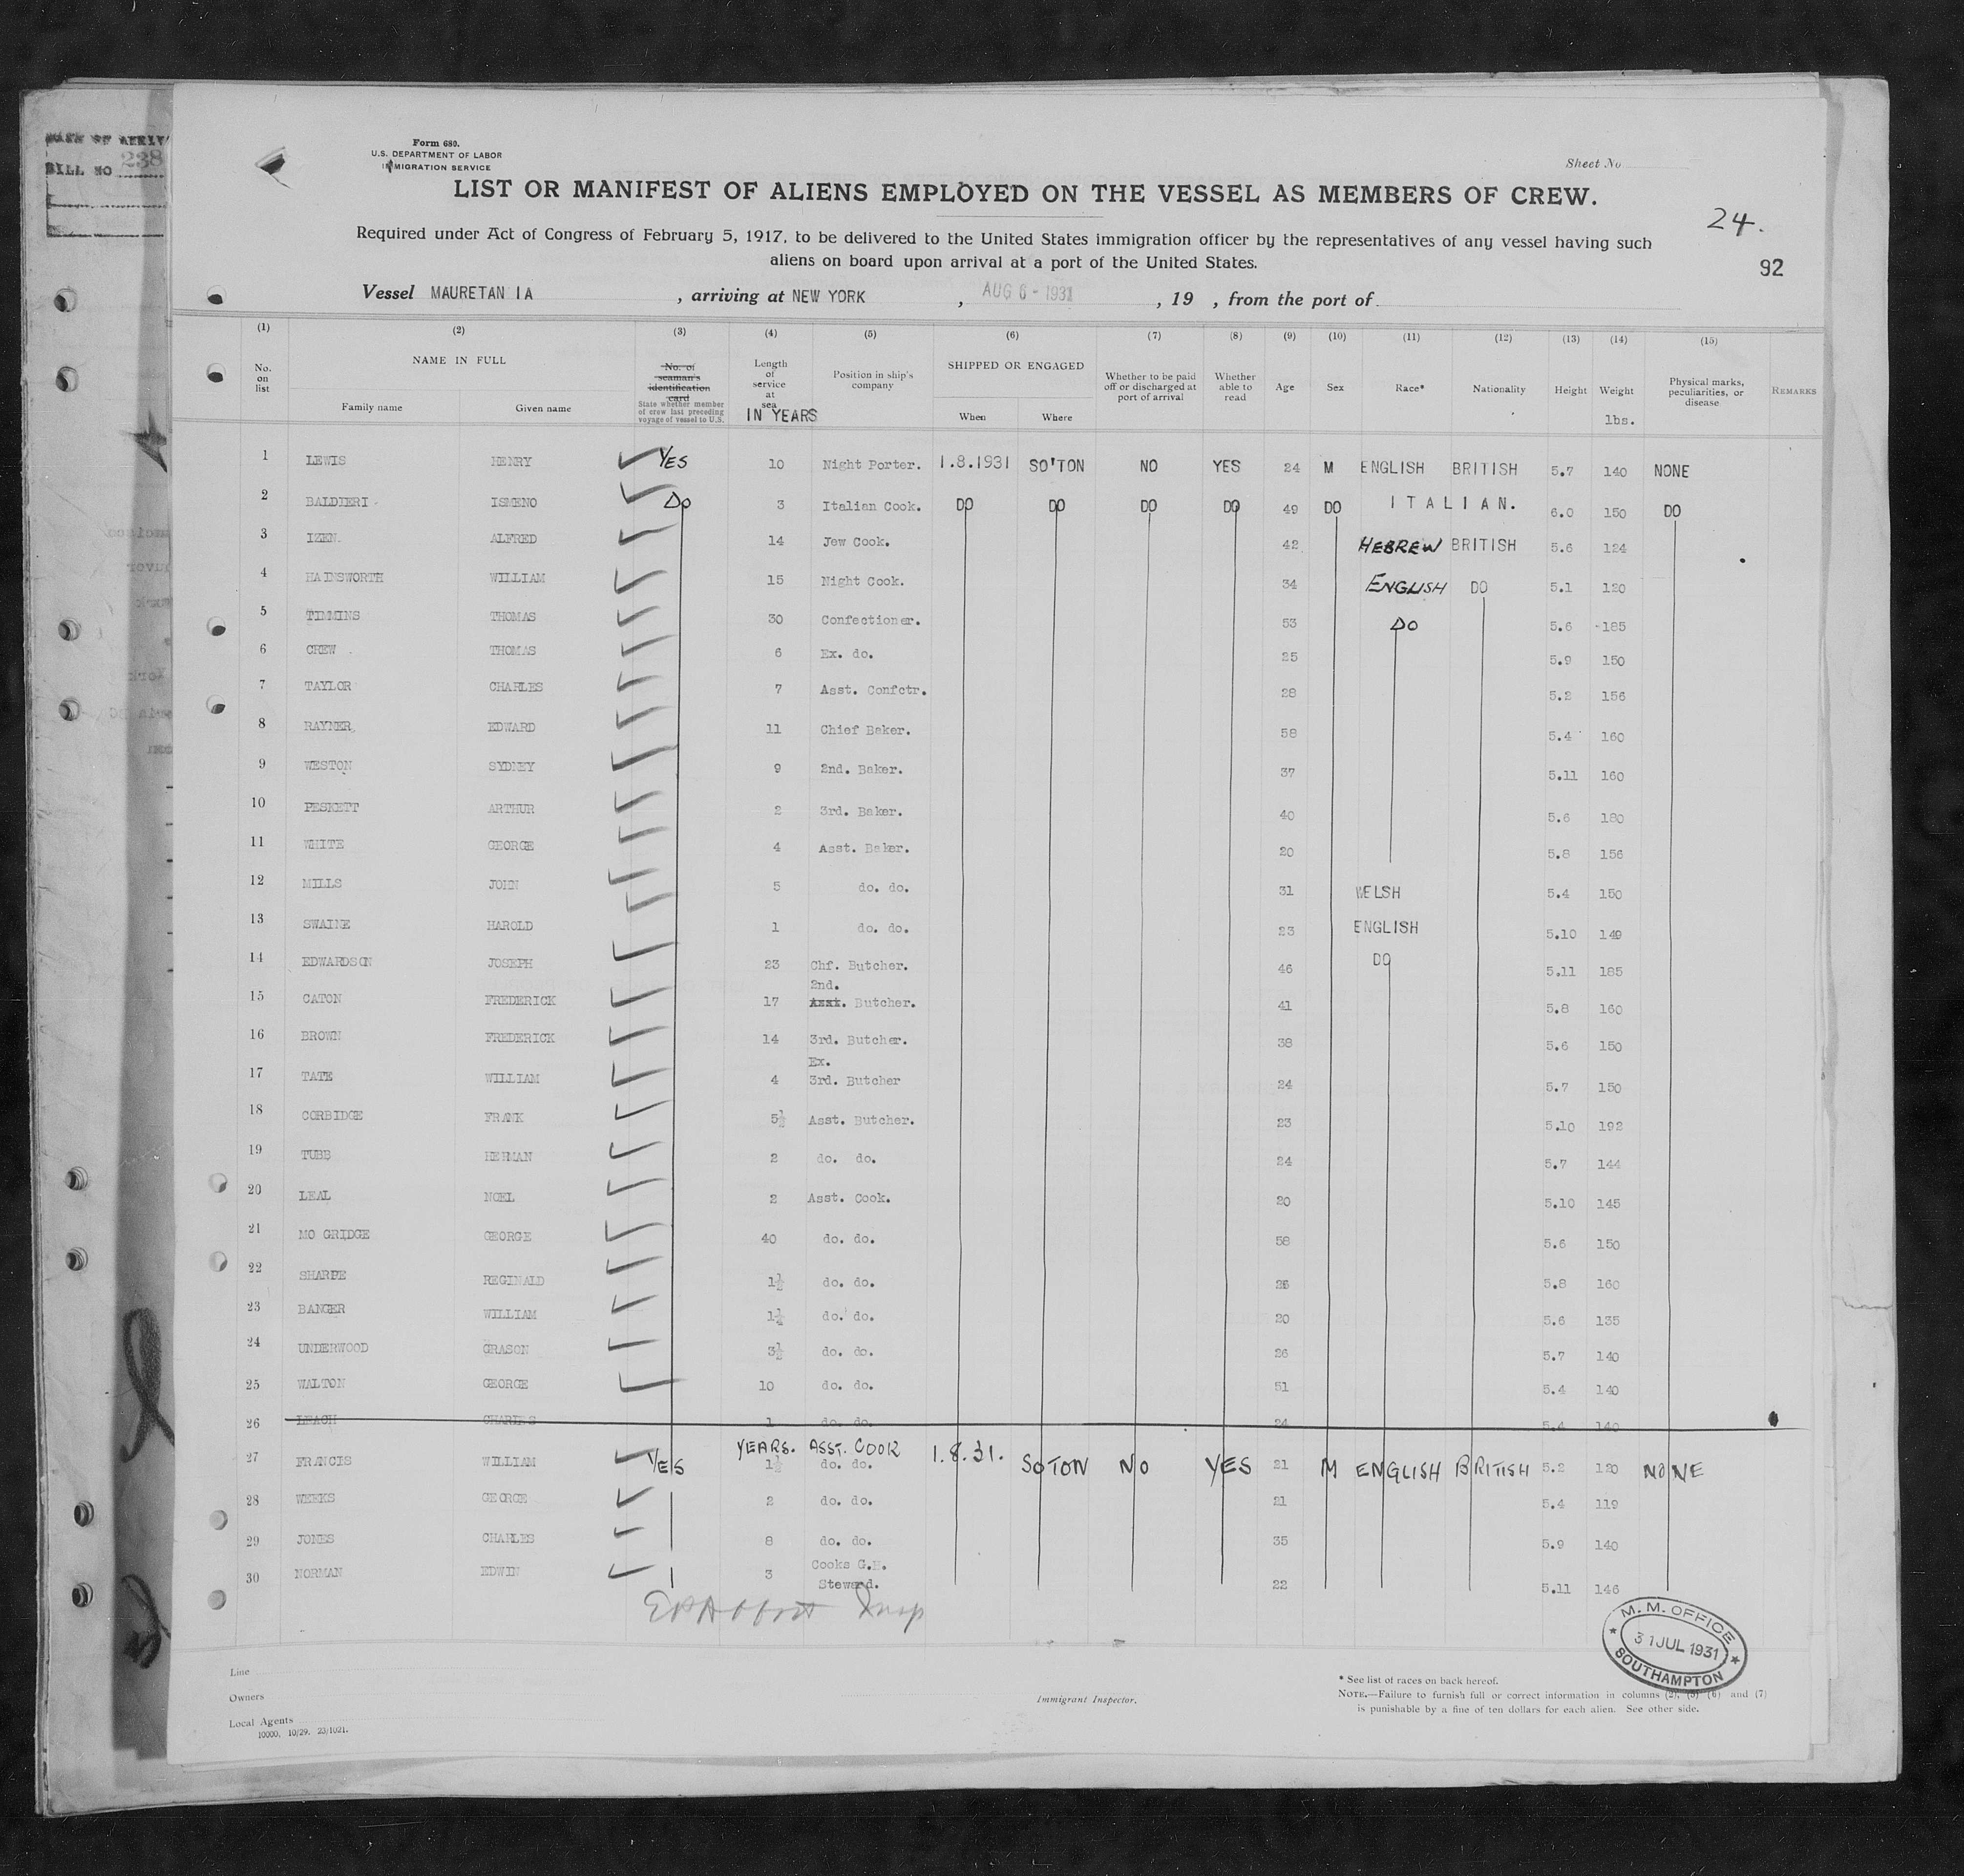 BILL NO 238
Form 680.
U.S. DEPARTMENT OF LABOR
IMMIGRATION SERVICE
Sheet No
LIST OR MANIFEST OF ALIENS EMPLOYED ON THE VESSEL AS MEMBERS OF CREW.
24.
Required under Act of Congress of February 5, 1917, to be delivered to the United States immigration officer by the representatives of any vessel having such
aliens on board upon arrival at a port of the United States.
92
Vessel MAURETANIA , arriving at NEW YORK , AUG 6 - 1931 , 19 , from the port of
(1) (2) (3) (4) (5) (6) (7) (8) (9) (10) (11) (12) (13) (14) (15)
No. on list NAME IN FULL Family name Given name No. of seaman's identification card State whether member of crew last preceding voyage of vessel to U.S. Length of service at sea IN YEARS Position in ship's company SHIPPED OR ENGAGED When Where Whether to be paid off or discharged at port of arrival Whether able to read Age Sex Race* Nationality Height Weight lbs. Physical marks, peculiarities, or disease REMARKS
1 LEWIS HENRY YES 10 Night Porter. 1.8.1931 SO'TON NO YES 24 M ENGLISH BRITISH 5.7 140 NONE
2 BALDIERI ISMENO DO 3 Italian Cook. DO DO DO DO 49 DO ITALIAN. 6.0 150 DO
3 IZEN. ALFRED 14 Jew Cook. 42 HEBREW BRITISH 5.6 124
4 HAINSWORTH WILLIAM 15 Night Cook. 34 ENGLISH DO 5.1 120
5 TIMMINS THOMAS 30 Confectioner. 53 DO 5.6 185
6 CREW THOMAS 6 Ex. do. 25 5.9 150
7 TAYLOR CHARLES 7 Asst. Confctr. 28 5.2 156
8 RAYNER, EDWARD 11 Chief Baker. 58 5.4 160
9 WESTON SYDNEY 9 2nd. Baker. 37 5.11 160
10 PESKETT ARTHUR 2 3rd. Baker. 40 5.6 180
11 WHITE GEORGE 4 Asst. Baker. 20 5.8 156
12 MILLS JOHN 5 do. do. 31 WELSH 5.4 150
13 SWAINE HAROLD 1 do. do. 23 ENGLISH 5.10 149
14 EDWARDSON JOSEPH 23 Chf. Butcher. 46 DO 5.11 185
2nd.
15 CATON FREDERICK 17 Asst. Butcher. 41 5.8 160
16 BROWN FREDERICK 14 3rd. Butcher. 38 5.6 150
Ex.
17 TATE WILLIAM 4 3rd. Butcher 24 5.7 150
18 CORBIDGE FRANK 5½ Asst. Butcher. 23 5.10 192
19 TUBB HERMAN 2 do. do. 24 5.7 144
20 LEAL NOEL 2 Asst. Cook. 20 5.10 145
21 MO GRIDGE GEORGE 40 do. do. 58 5.6 150
22 SHARPE REGINALD 1½ do. do. 26 5.8 160
23 BANGER WILLIAM 1¼ do. do. 20 5.6 135
24 UNDERWOOD GRASON 3½ do. do. 26 5.7 140
25 WALTON GEORGE 10 do. do. 51 5.4 140
26 LEACH CHARLES 1 do. do. 24 5.4 140
YEARS. ASST. COOK
27 FRANCIS WILLIAM YES 1½ do. do. 1.8.31. SOTON NO YES 21 M ENGLISH BRITISH 5.2 120 NONE
28 WEEKS GEORGE 2 do. do. 21 5.4 119
29 JONES CHARLES 8 do. do. 35 5.9 140
30 NORMAN EDWIN 3 Cooks G.H. Steward. 22 5.11 146
M. M. OFFICE
31 JUL 1931
SOUTHAMPTON
Line
Owners
Local Agents
10000. 10/29. 23/1021.
Immigrant Inspector.
* See list of races on back hereof.
NOTE.—Failure to furnish full or correct information in columns (2), (5) (6) and (7)
is punishable by a fine of ten dollars for each alien. See other side.